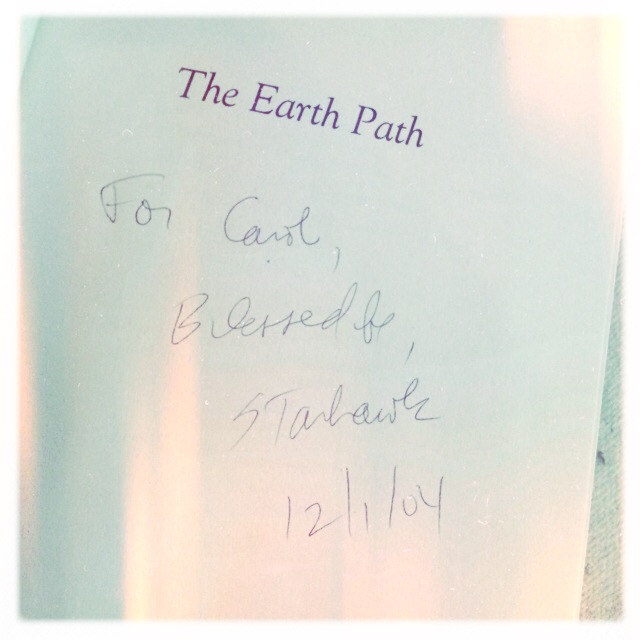 The Earth Path
For Carol,
Blessed be,
Starhawk
12/1/04